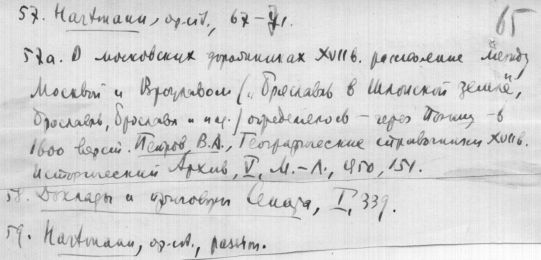 57. Hartmann, op. cit., 67-71.
65
57а. В московских дорожниках XVIIв. расстояние между
Москвой и Вроцлавом („Бреславль в Шлонской земле",
Бреславль, Бреславы и пр.) определялось – через Познань – в
1600 верст. Петров, В.А., Географические справочники XVIIв.
Исторический Архив, V, М.-Л., 1950, 151.
58. Доклады и приговоры Сената, I, 339.
59. Hartmann, op. cit., passim.